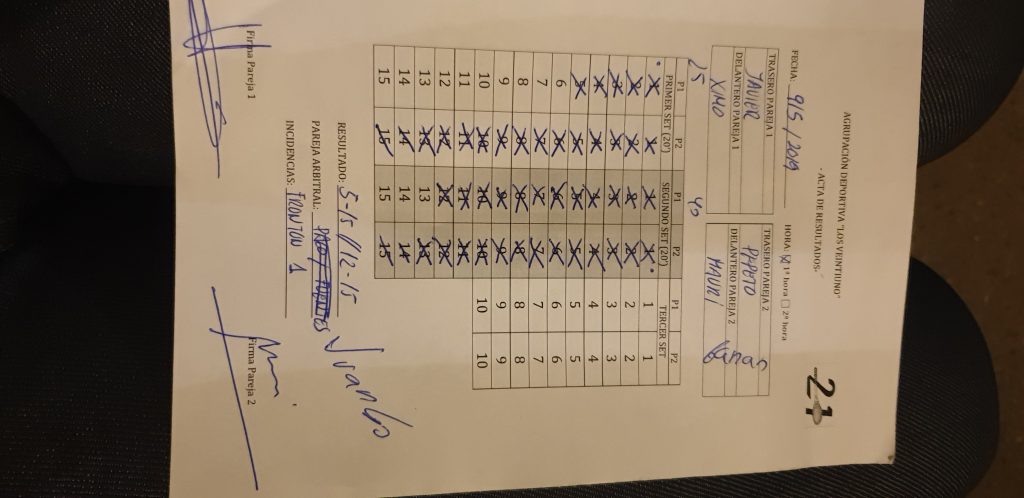 21
AGRUPACIÓN DEPORTIVA "LOS VEINTIUNO"
- ACTA DE RESULTADOS-
FECHA: 9/5/2019 HORA: 1ª hora 2ª hora
TRASERO PAREJA 1 TRASERO PAREJA 2
JAVIER PEPETO
DELANTERO PAREJA 1 DELANTERO PAREJA 2
XIMO MAURI
ganan
25 40
PRIMER SET (20') SEGUNDO SET (20') TERCER SET
P1 P2 P1 P2 P1 P2
1 1 1 1 1 1
2 2 2 2 2 2
3 3 3 3 3 3
4 4 4 4 4 4
5 5 5 5 5 5
6 6 6 6 6 6
7 7 7 7 7 7
8 8 8 8 8 8
9 9 9 9 9 9
10 10 10 10 10 10
11 11 11 11
12 12 12 12
13 13 13 13
14 14 14 14
15 15 15 15
RESULTADO: 5-15 // 12-15
PAREJA ARBITRAL: Juanbo
INCIDENCIAS: FRONTON 1
Firma Pareja 1 Firma Pareja 2